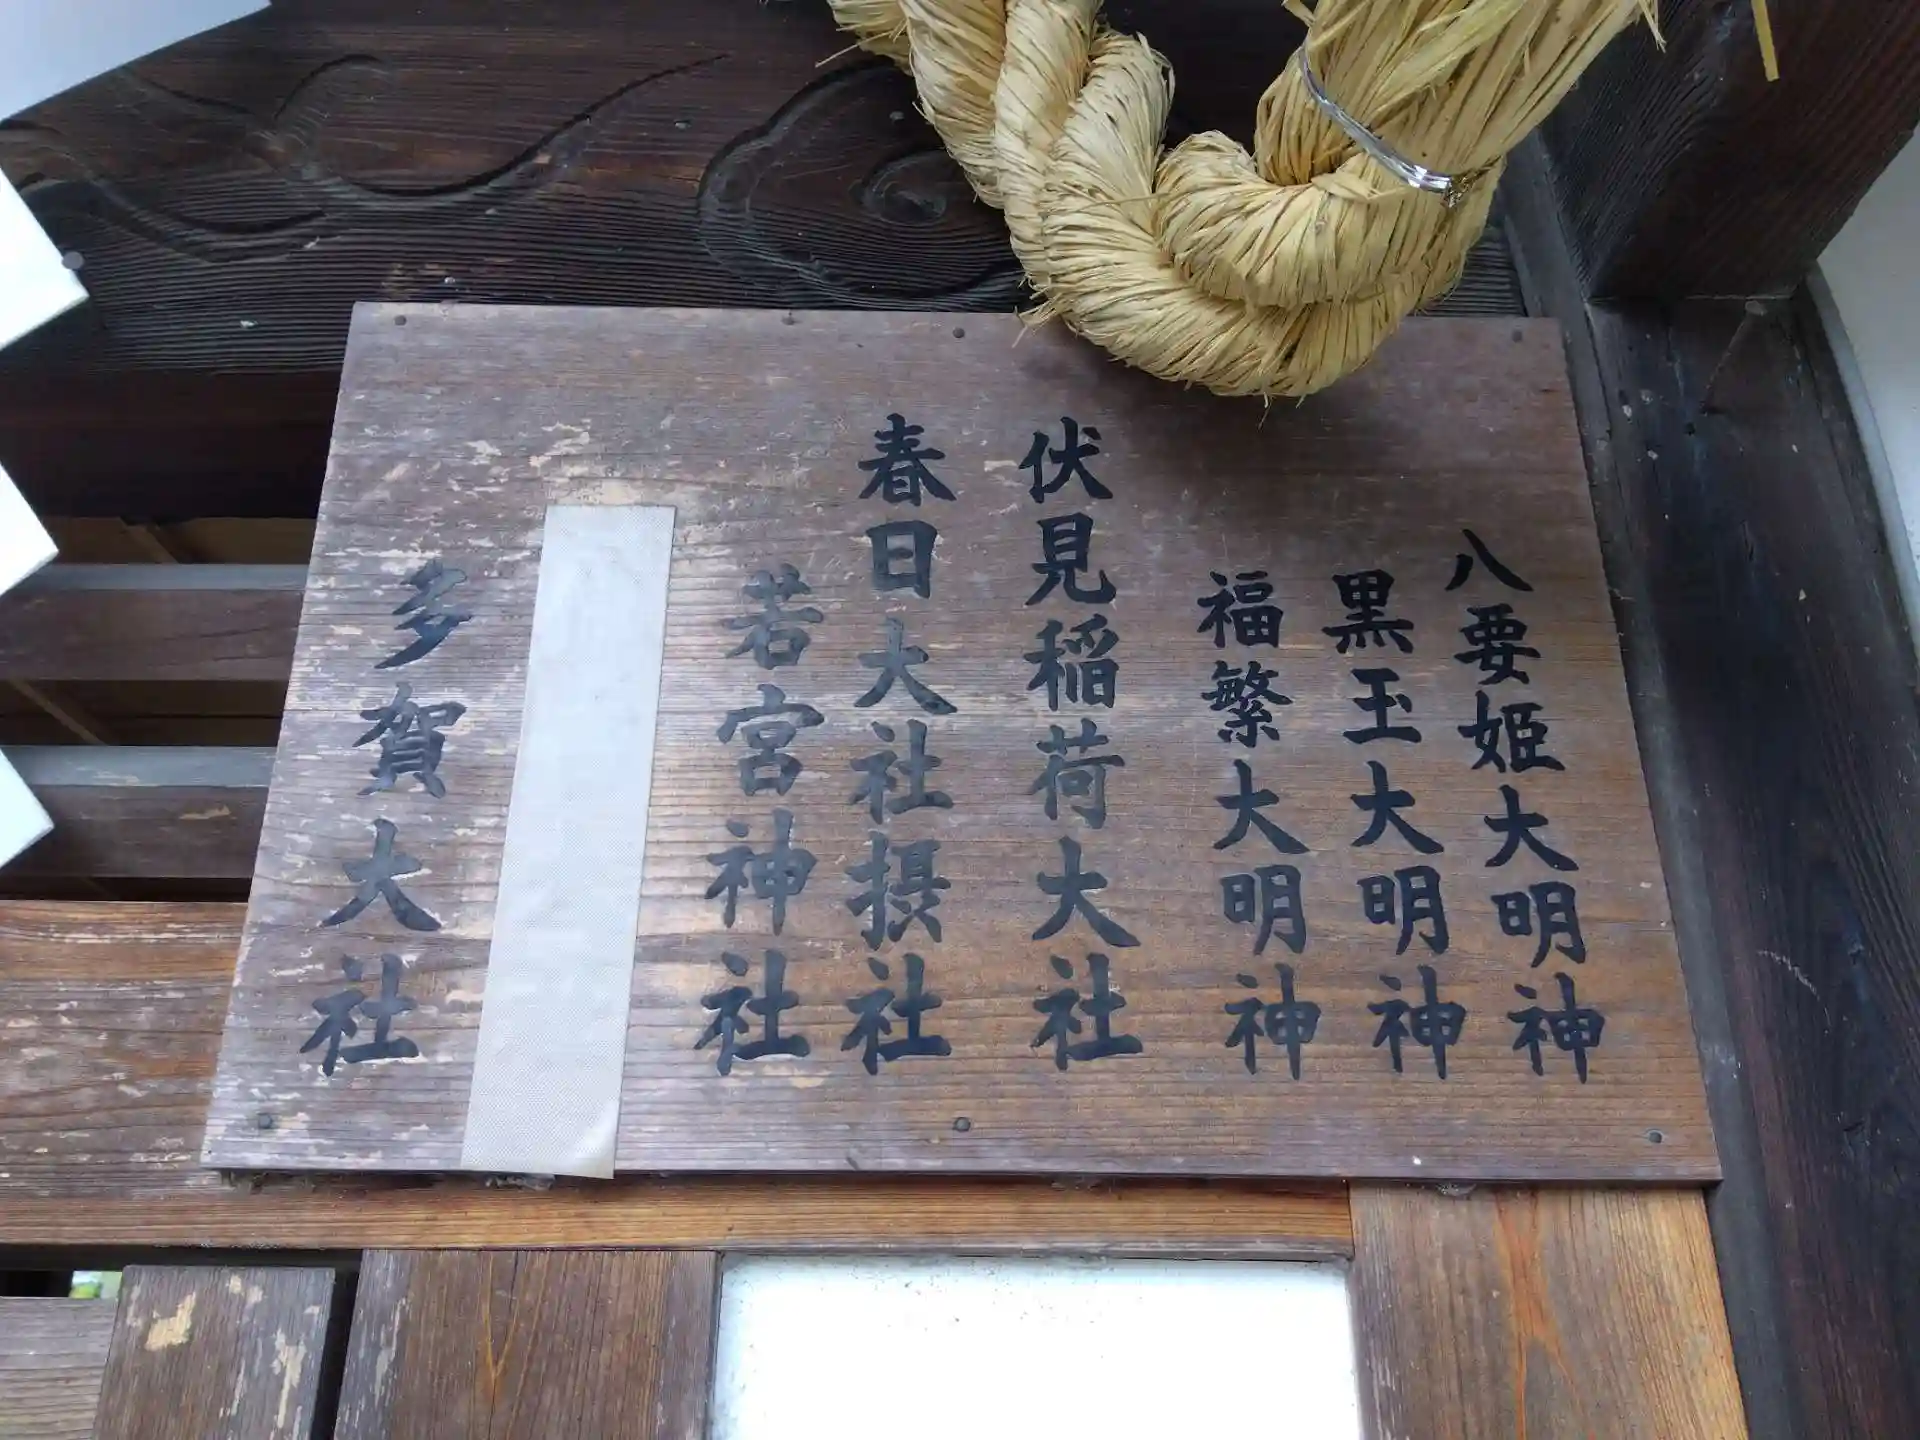 八要姫大明神
黒玉大明神
福繁大明神
伏見稲荷大社
春日大社摂社
若宮神社
多賀大社